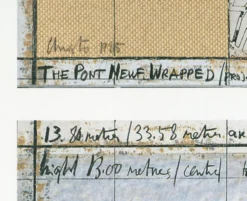 Christo 1985
THE PONT NEUF WRAPPED / PROJ
13.80 meter / 33.58 meter
hight 13.00 metres / centre